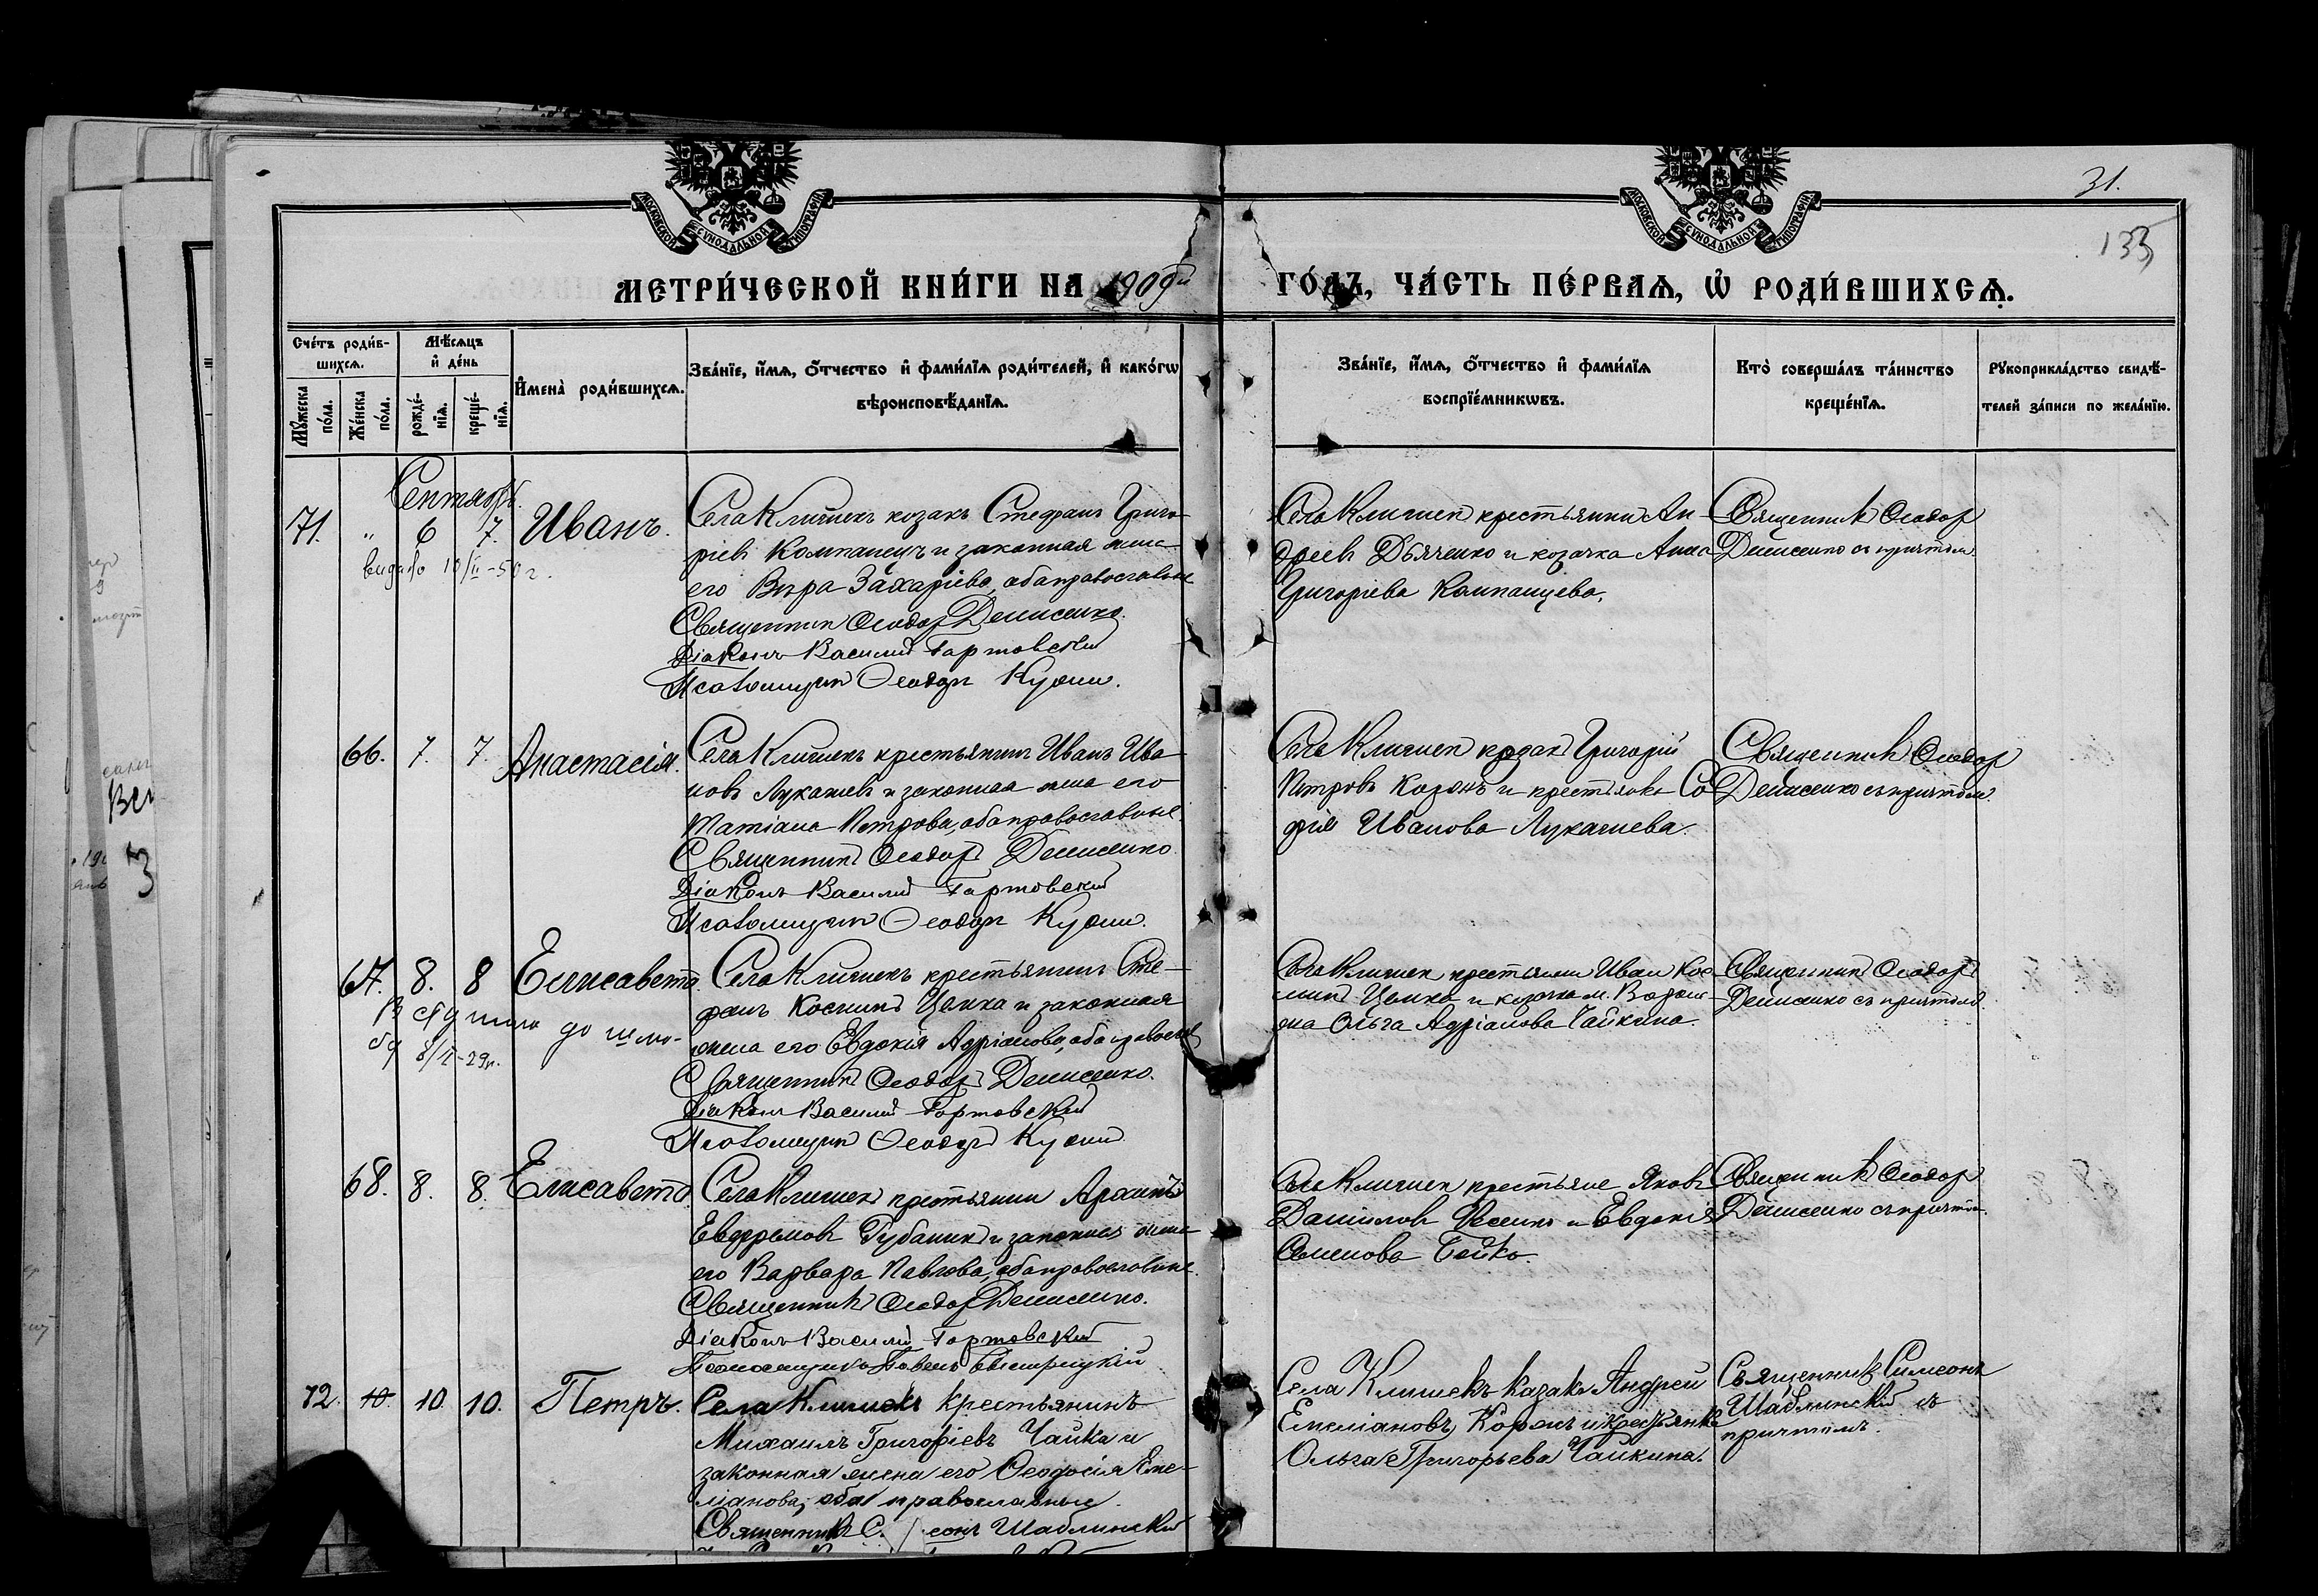 МОСКОВСКОЙ СУНОДАЛЬНОЙ ТИПОГРАФІИ
МОСКОВСКОЙ СУНОДАЛЬНОЙ ТИПОГРАФІИ
31.
133
МЕТРИ́ЧЕСКОЙ КНИ́ГИ НА 1909й ГО́ДЪ, ЧА́СТЬ ПЕ́РВАѦ, Ѡ҆ РОДИ́ВШИХСѦ.
Сче́тъ роди́в-
шихсѧ.
Мꙋ́жеска
по́ла.
Же́нска
по́ла.
Мѣ́сѧцъ
и҆ де́нь
рожде́-
нїѧ.
креще́-
нїѧ.
И҆мена̀ роди́вшихсѧ.
Зва́нїе, и҆́мѧ, ѻ҆́тчество и҆ фами́лїѧ роди́телей, и҆ како́гѡ
вѣроисповѣ́данїѧ.
Зва́нїе, и҆́мѧ, ѻ҆́тчество и҆ фами́лїѧ
воспрїе́мникѡвъ.
Кто̀ соверша́лъ та́инство
креще́нїѧ.
Рꙋкоприкла́дство свидѣ́-
телей за́писи по жела́нїю.
Сентябрь.
71. " 6 7. Иванъ.
видано 10/II-50 г.
Села Клишекъ козакъ Стефанъ Григо-
ріевъ Компанецъ и законная жена
его Вѣра Захаріева, оба православные
Священникъ Ѳеодоръ Денисенко.
Діаконъ Василій Гартовскій
Псаломщикъ Ѳеодоръ
Села Клишекъ крестьянинъ Ан-
дреевъ Дьяченко и козачка Анна
Григоріева Компанцева.
Священникъ Ѳеодоръ
Денисенко съ причтомъ
66. 7. 7. Анастасія.
Села Клишекъ крестьянинъ Иванъ Ива-
новъ Лукашевъ и законная жена его
Татіана Петрова, оба православные.
Священникъ Ѳеодоръ Денисенко
Діаконъ Василій Гартовскій
Псаломщикъ Ѳеодоръ
Села Клишекъ козакъ Григорій
Петровъ Коронъ и крестьянка Со
фія Иванова Лукашева.
Священникъ Ѳеодоръ
Денисенко съ причтомъ.
67. 8. 8 Елисавета.
8/II-29г.
Села Клишекъ крестьянинъ Сте-
фанъ Косминъ Цемка и законная
жена его Евдокія Адріанова, оба православн
Священникъ Ѳеодоръ Денисенко.
Діаконъ Василій Гартовскій
Псаломщикъ Ѳеодоръ
Села Клишекъ крестьянинъ Иванъ Кос-
минъ Цемка и козачка м. Вороне-
жа Ольга Адріанова Чайкина.
Священникъ Ѳеодоръ
Денисенко съ причтомъ
68. 8. 8. Елисавета.
Села Клишекъ крестьянинъ
Евфремовъ Губаникъ и законная жена
его Варвара Павлова, оба православные.
Священникъ Ѳеодоръ Денисенко.
Діаконъ Василій Гартовскій
Псаломщикъ Павелъ Быстрицкій
Села Клишекъ крестьяне Яковъ
Даніиловъ Фесенко и Евдокія
Семенова Бойко.
Священникъ Ѳеодоръ
Денисенко съ причтом.
72. 10. 10. 10. Петръ.
Села Клишекъ крестьянинъ
Михаилъ Григоріевъ Чайка и
законная жена его Ѳеодосія Еме-
ліанова, оба православные.
Священникъ С. еонъ Шаблинскій
Села Клишекъ казакъ Андрей
Емеліановъ Коронъ и крестьянка
Ольга Григорьева Чайкина.
Священникъ Симеонъ
Шаблинскій съ
причтомъ.